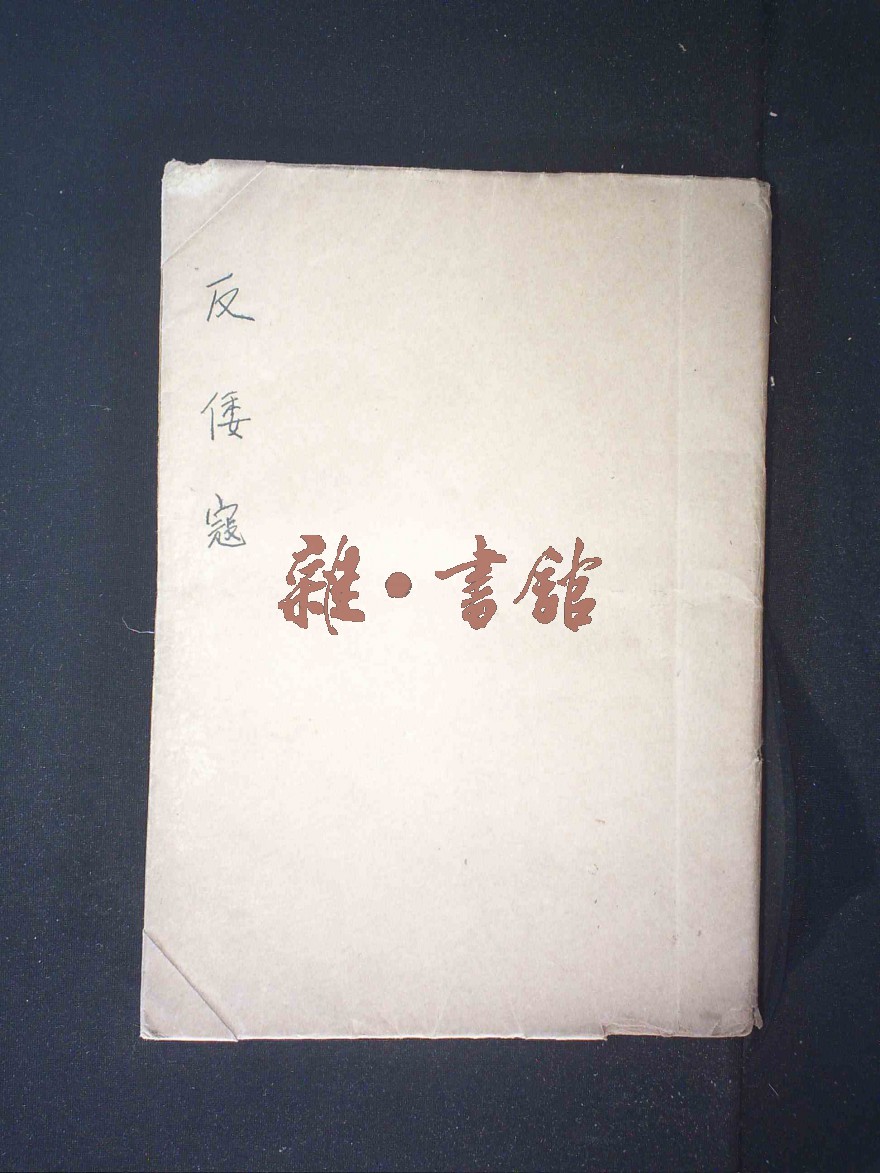 反倭寇
雜·書館